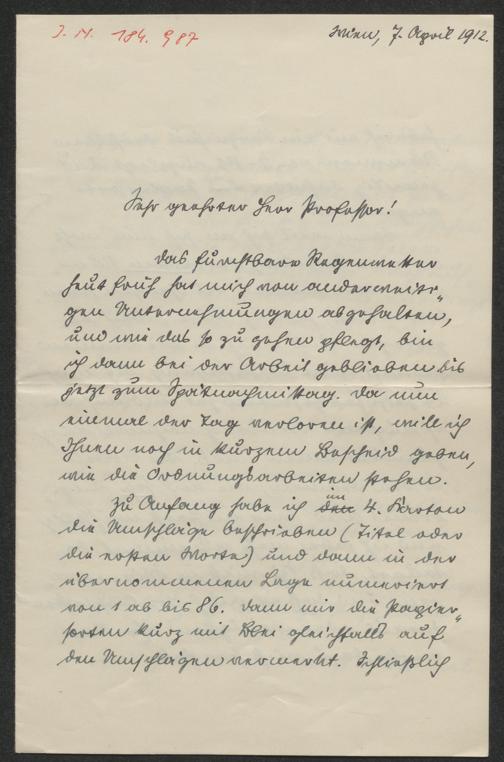 I. N. 184.987
Wien, 7. April 1912.
Sehr geehrter Herr Professor!
Das furchtbare Regenwetter
heut früh hat mich von anderweiti-
gen Unternehmungen abgehalten,
und wie das so zu gehen pflegt, bin
ich dann bei der Arbeit geblieben bis
jetzt zum Spätnachmittag. Da nun
einmal der Tag verloren ist, will ich
Ihnen noch in kurzem Bescheid geben,
wie die Ordnungsarbeiten stehen.
Zu Anfang habe ich den im 4. Karton
die Umschläge beschrieben (Titel oder
die ersten Worte) und dann in der
übernommenen Lage numeriert
von 1 ab bis 86. Dann mir die Papier-
sorten kurz mit Blei gleichfalls auf
den Umschlägen vermerkt. Schließlich